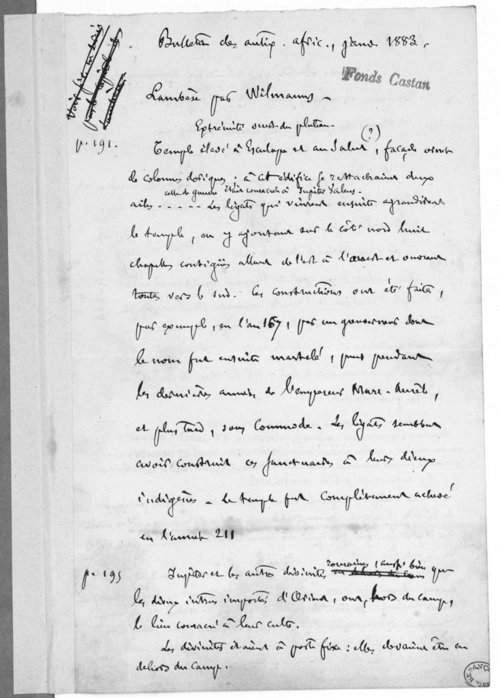 Bulletin des antiq. afric., janv. 1883.
Fonds Castan
Lambèse par Wilmanns.
Extrémité ouest du plateau.
p. 191.
Temple élevé à Esculape et au Salut (?), façade ornée
de colonnes doriques ; à cet édifice se rattachaient deux
celle de gauche était consacrée à Jupiter Valens.
ailes ..... Les légats qui vinrent ensuite agrandirent
le temple, en y ajoutant sur le côté nord huit
chapelles contiguës allant de l'est à l'ouest et ouvrant
toutes vers le sud. Ces constructions ont été faites,
par exemple, en l'an 167, par un gouverneur dont
le nom fut ensuite martelé, puis pendant
les dernières années de l'empereur Marc-Aurèle,
et plus tard, sous Commode. Les légats semblent
avoir construit ces sanctuaires à leurs dieux
indigènes. Le temple fut complètement achevé
en l'année 211
p. 195
Jupiter et les autres divinités romaines, aussi bien que
les dieux intrus importés d'Orient, ont, hors du camp,
le lieu consacré à leur culte.
Les divinités étaient à poste fixe : elles devaient être en
dehors du camp.